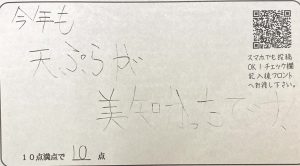 今年も
天ぷらが
美味かったです。
スマホでも投稿
OK！チェック欄
記入後フロント
へお渡し下さい。
10点満点で 10 点